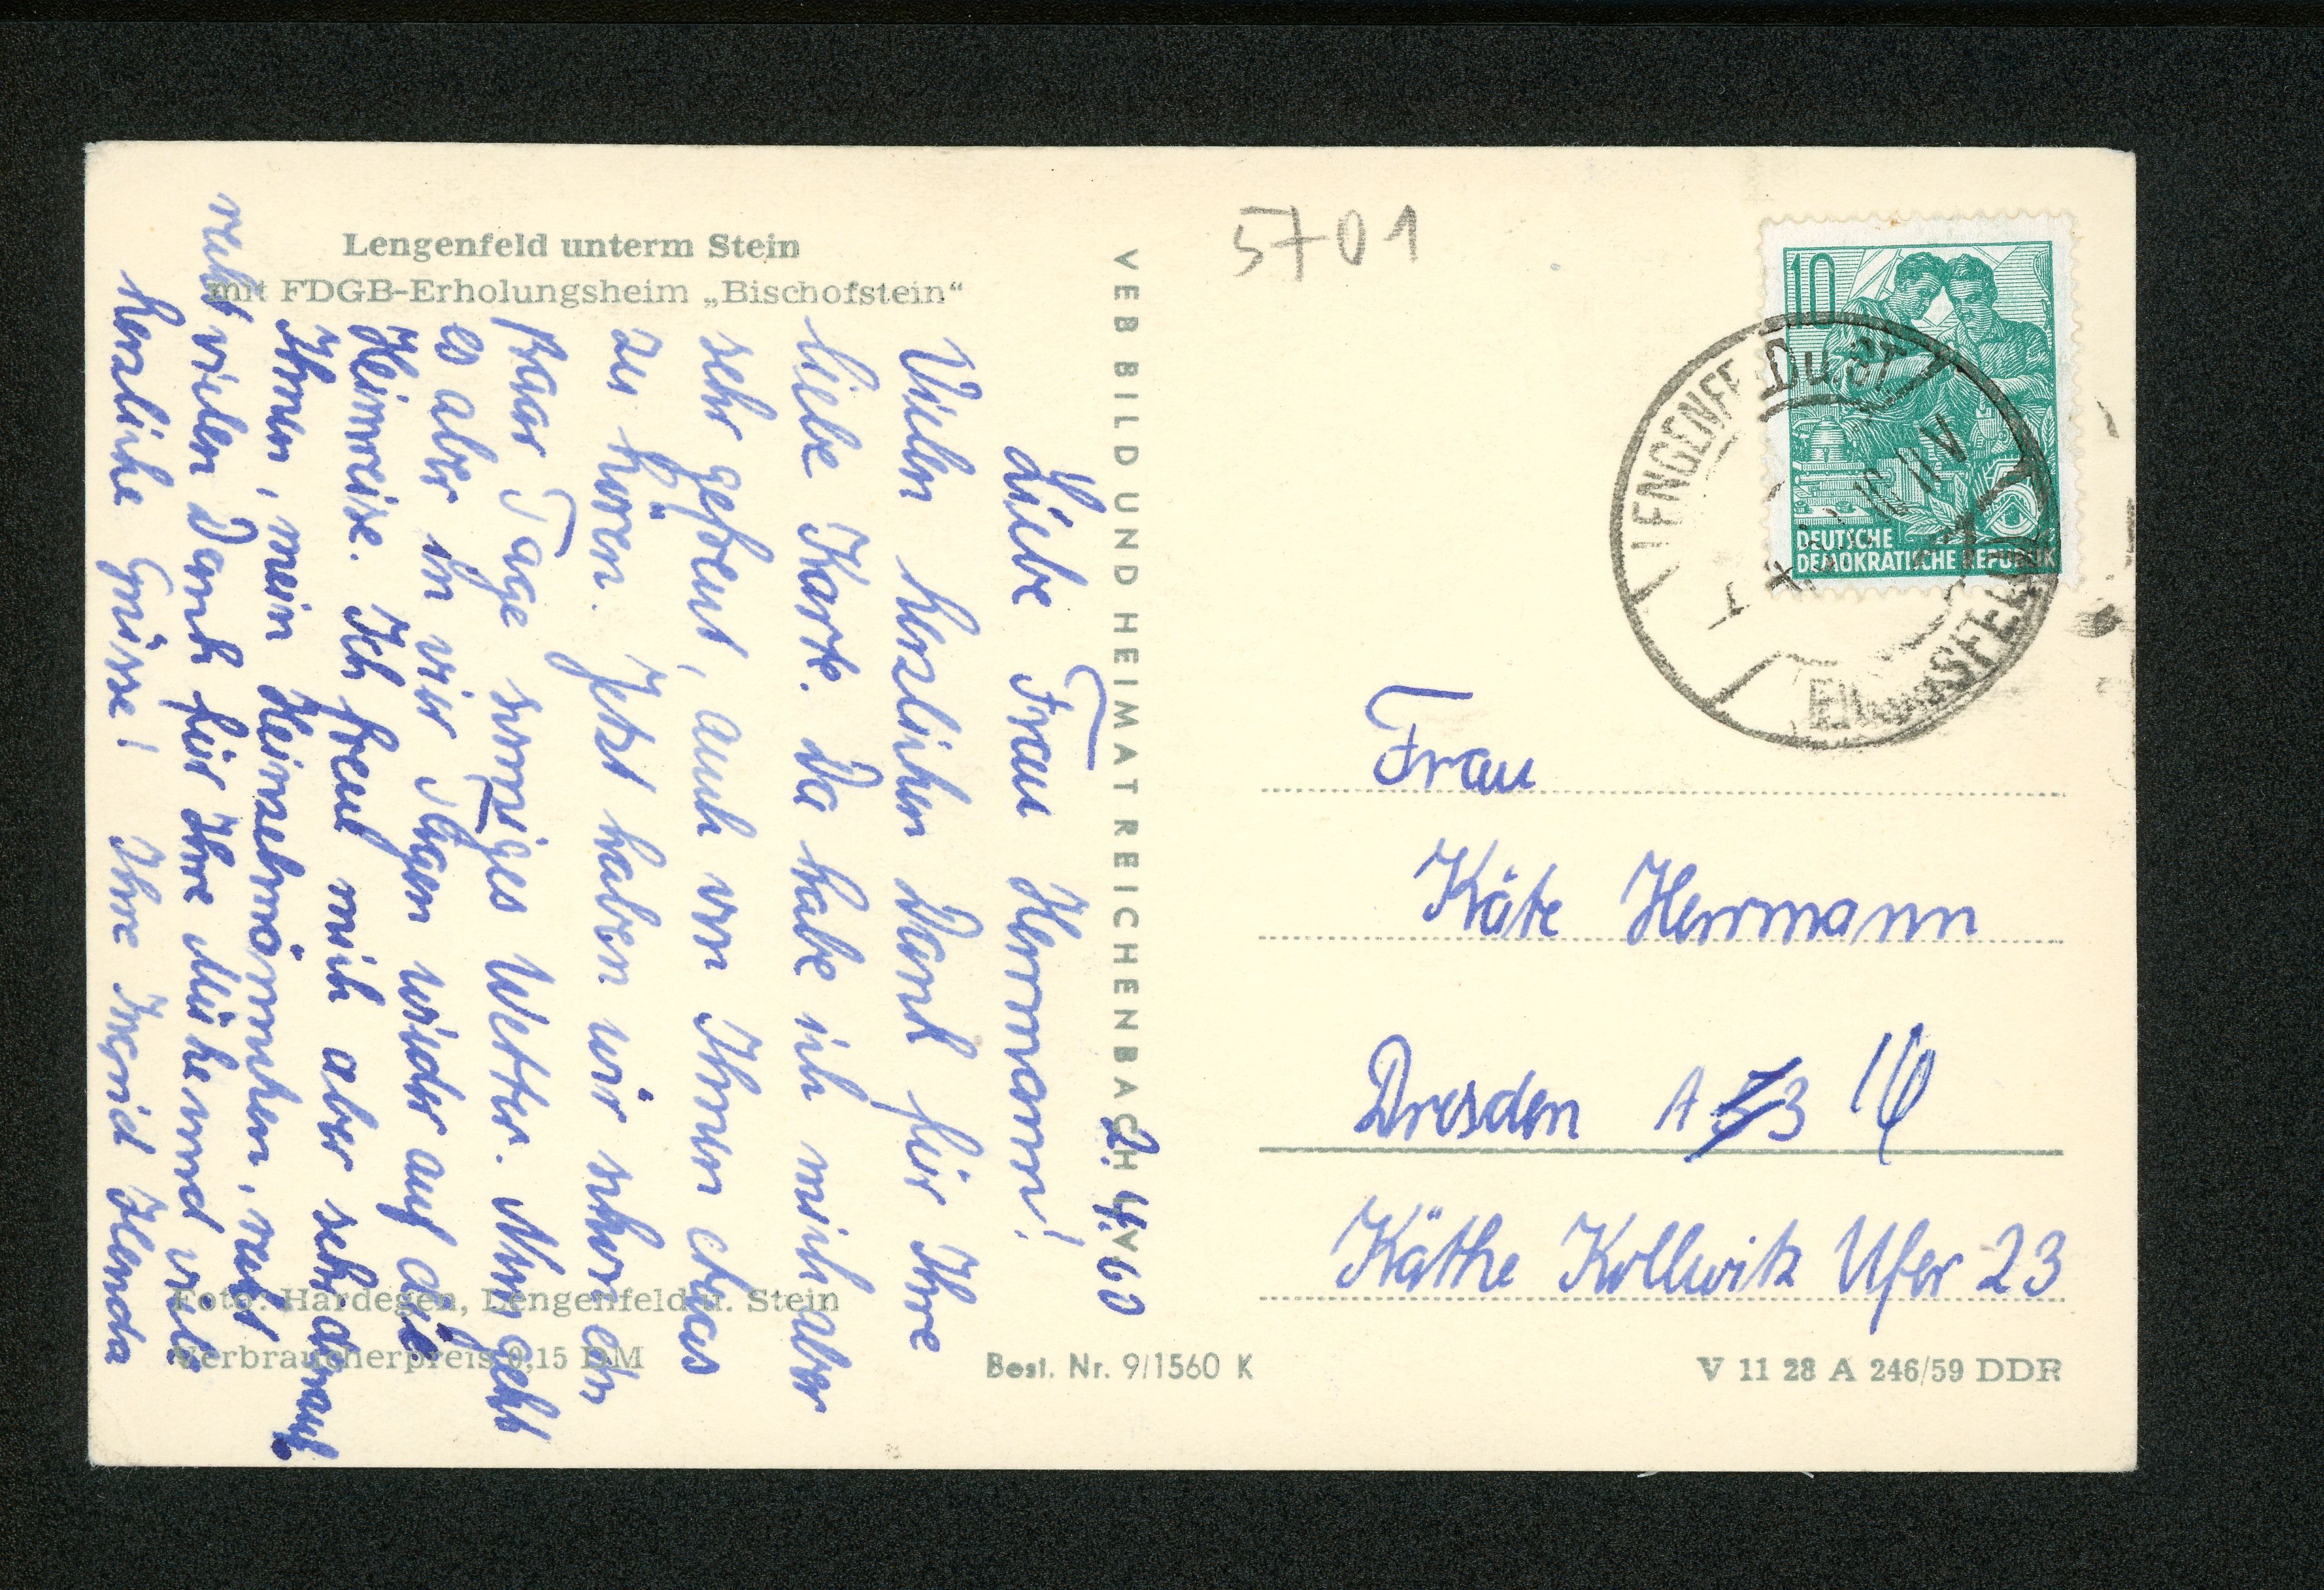 Lengenfeld unterm Stein
mit FDGB-Erholungsheim „Bischofstein“
2. IV. 60
Liebe Frau Herrmann!
Vielen herzlichen Dank für Ihre
liebe Karte. Da habe ich mich aber
sehr gefreut, auch von Ihnen etwas
zu hören. Jetzt haben wir schon ein
paar Tage sonniges Wetter. Nun geht
es aber in vier Tagen wieder auf die
Heimreise. Ich freue mich aber sehr darauf
Ihnen, mein Heinzelmännchen, recht
recht vielen Dank für Ihre Mühe und viele
herzliche Grüsse! Ihre Ingrid
Foto: Hardegen, Lengenfeld u. Stein
Verbraucherpreis 0,15 DM
VEB BILD UND HEIMAT REICHENBACH I. V.
Best. Nr. 9/1560 K
5701
10
DEUTSCHE
DEMOKRATISCHE REPUBLIK
LENGENFELD U ST
Frau
Käte Herrmann
Dresden A 16
Käthe Kollwitz Ufer 23
V 11 28 A 246/59 DDR